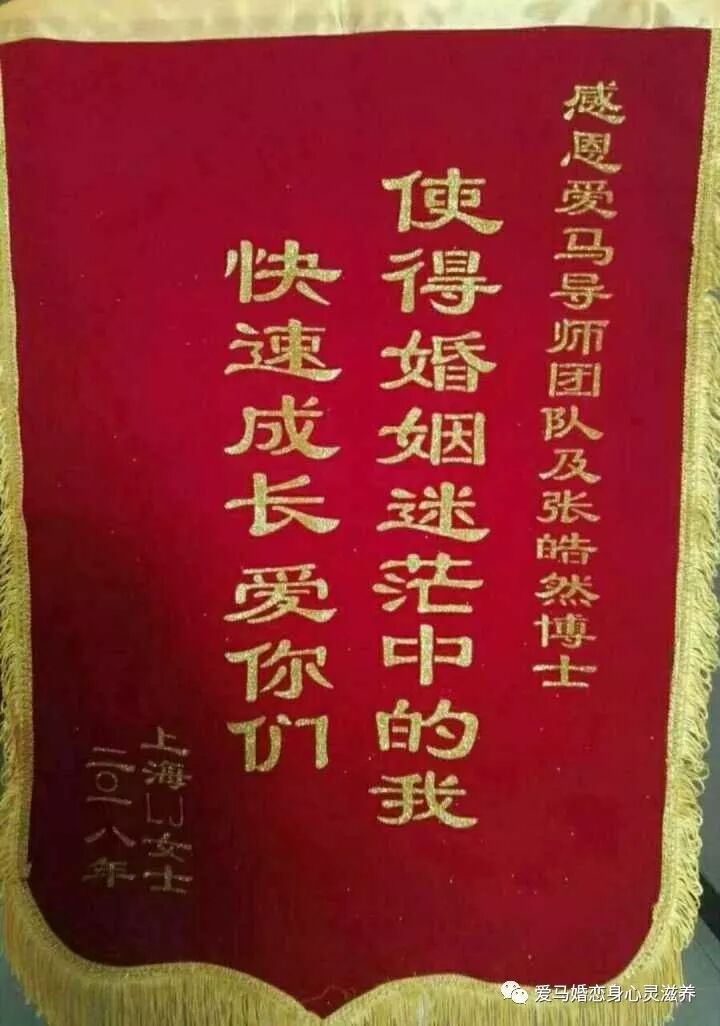 感恩爱马导师团队及张皓然博士
使得婚姻迷茫中的我
快速成长爱你们
上海LJ女士
二〇一八年
爱马婚恋身心灵滋养